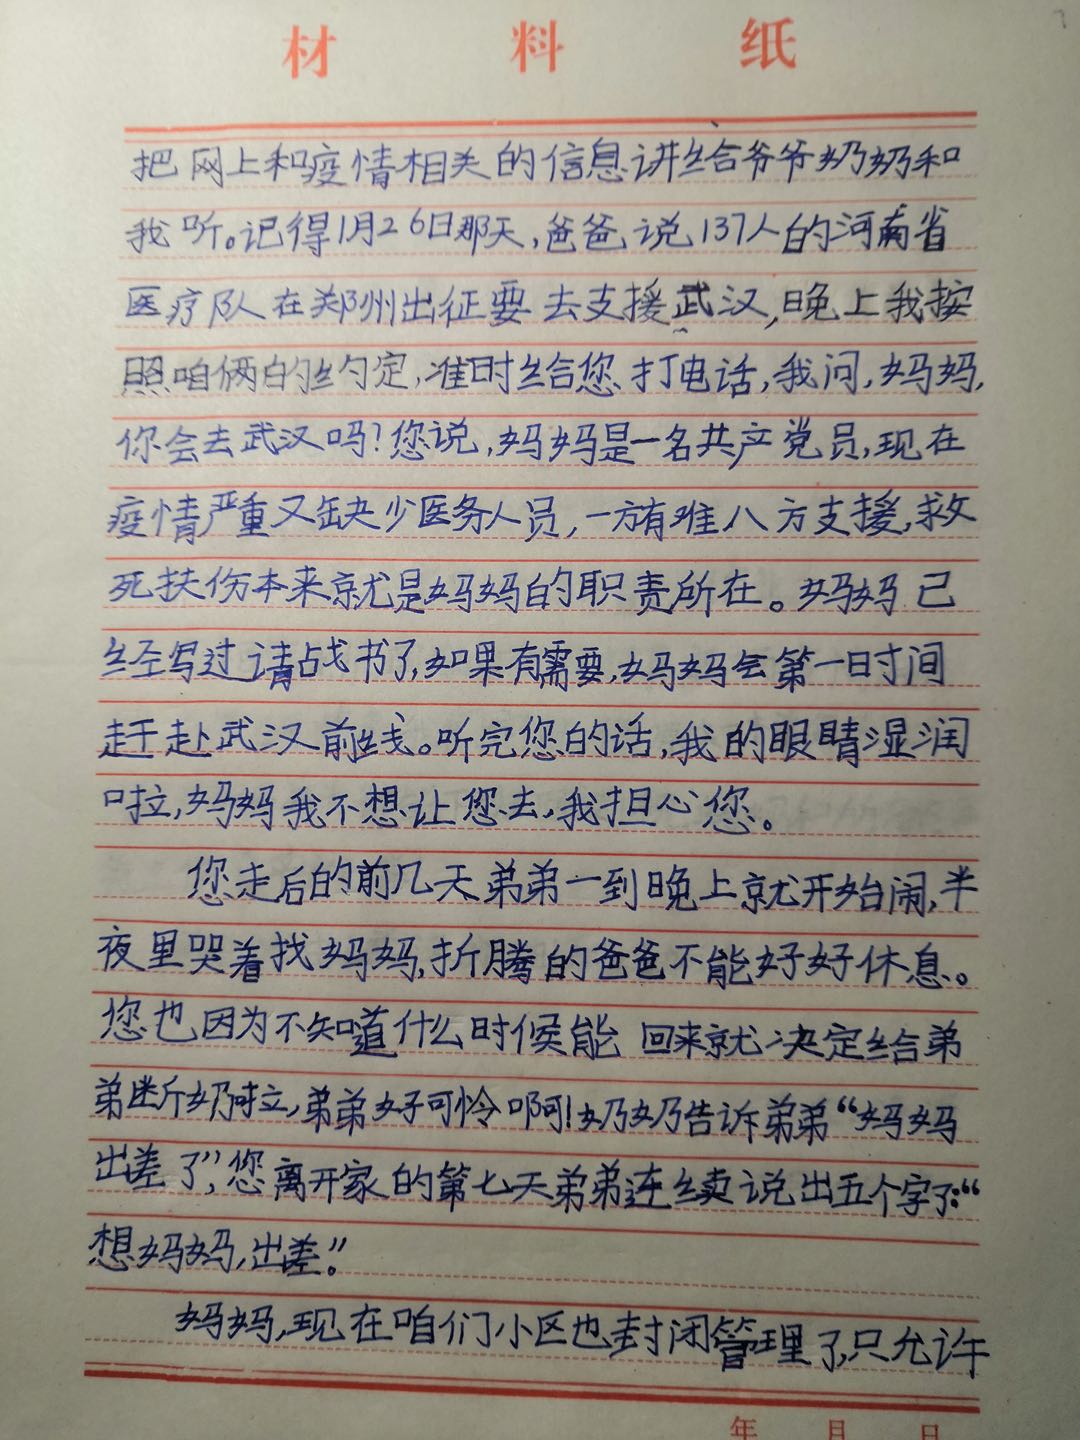 材料纸
把网上和疫情相关的信息讲给爷爷奶奶和
我听。记得1月26日那天,爸爸说137人的河南省
医疗队在郑州出征要去支援武汉,晚上我按
照咱俩的约定,准时给您打电话,我问,妈妈,
你会去武汉吗?您说,妈妈是一名共产党员,现在
疫情严重又缺少医务人员,一方有难八方支援,救
死扶伤本来就是妈妈的职责所在。妈妈已
经写过请战书了,如果有需要,妈妈会第一时间
赶赴武汉前线。听完您的话,我的眼睛湿润
啦,妈妈我不想让您去,我担心您。
您走后的前几天弟弟一到晚上就开始闹,半
夜里哭着找妈妈,折腾的爸爸不能好好休息。
您也因为不知道什么时候能回来就决定给弟
弟断奶啦,弟弟好可怜啊!奶奶告诉弟弟“妈妈
出差了”,您离开家的第七天弟弟连续说出五个字了:“
想妈妈,出差。”
妈妈,现在咱们小区也封闭管理了,只允许
年 月 日